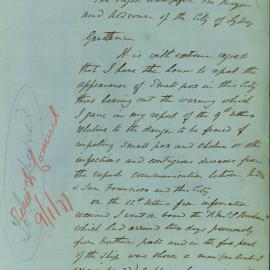 The Right Worshipful The Mayor
and Aldermen of the City of Sydney
Gentlemen
It is with extreme regret
that I have the honor to report the
appearance of Small pox in this City
thus bearing out the warning which
I gave in my report of the 9th
relative to the danger to be feared of
importing Small pox and cholera or other
infectious and contagious diseases from
the rapid communication between India
& San Francisco and this City.
On the 12th from information
received I went on board the
which had arrived two days previously
from Northern ports and in the fore part
of the ship was there a man
Read
Council
9/1/77